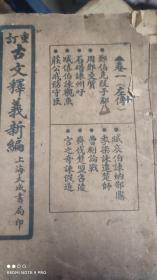 重訂
古文釋義新編
上海大成書局印
卷一（左傳）
鄭伯克段于鄢
周鄭交質
石碏諫州吁
臧僖伯諫觀魚
莊公戒飭守臣
臧哀伯諫納郜鼎
季梁諫追楚師
曹劌論戰
齊伐楚盟召陵
宮之奇諫假道